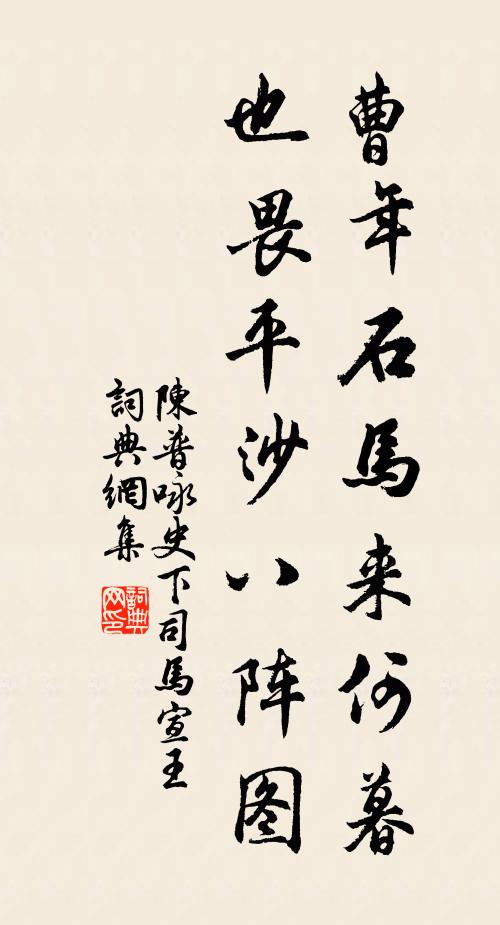 曹年石馬来何暮
也畏平沙八阵图
陳普咏史下司馬宣王
詞典網集
詞典
网印